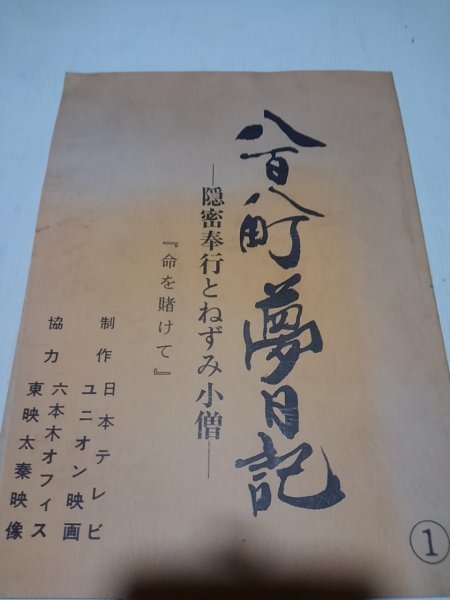 八百八町夢日記
―隠密奉行とねずみ小僧―
『命を賭けて』
制作 日本テレビ
ユニオン映画
協力 六本木オフィス
東映太秦映像
①